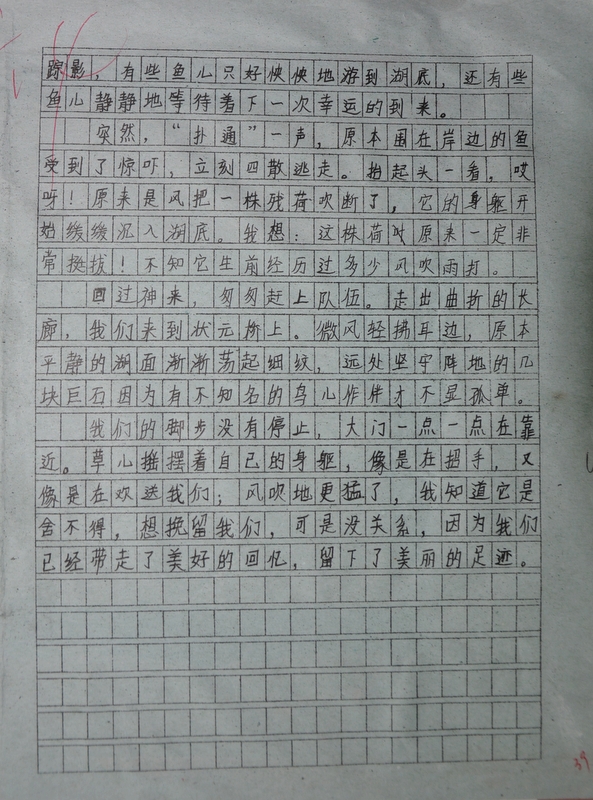 踪影，有些鱼儿只好怏怏地游到湖底，还有些
鱼儿静静地等待着下一次幸运的到来。
突然，“扑通”一声，原本围在岸边的鱼
受到了惊吓，立刻四散逃走。抬起头一看，哎
呀！原来是风把一株残荷吹断了，它的身躯开
始缓缓沉入湖底。我想：这株荷叶原来一定非
常挺拔！不知它生前经历过多少风吹雨打。
回过神来，匆匆赶上队伍。走出曲折的长
廊，我们来到状元桥上。微风轻拂耳边，原本
平静的湖面渐渐荡起细纹，远处坚守阵地的几
块巨石因为有不知名的鸟儿作伴才不显孤单。
我们的脚步没有停止，大门一点一点在靠
近。草儿摇摆着自己的身躯，像是在招手，又
像是在欢送我们；风吹地更猛了，我知道它是
舍不得，想挽留我们，可是没关系，因为我们
已经带走了美好的回忆，留下了美丽的足迹。
39